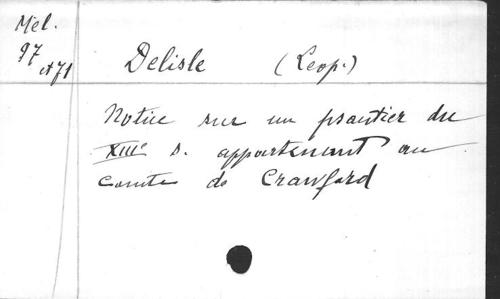 Mél.
97
et 71
Delisle (Léop.)
Notice sur un psautier du
XIIIe s. appartenant au
comte de Crawford